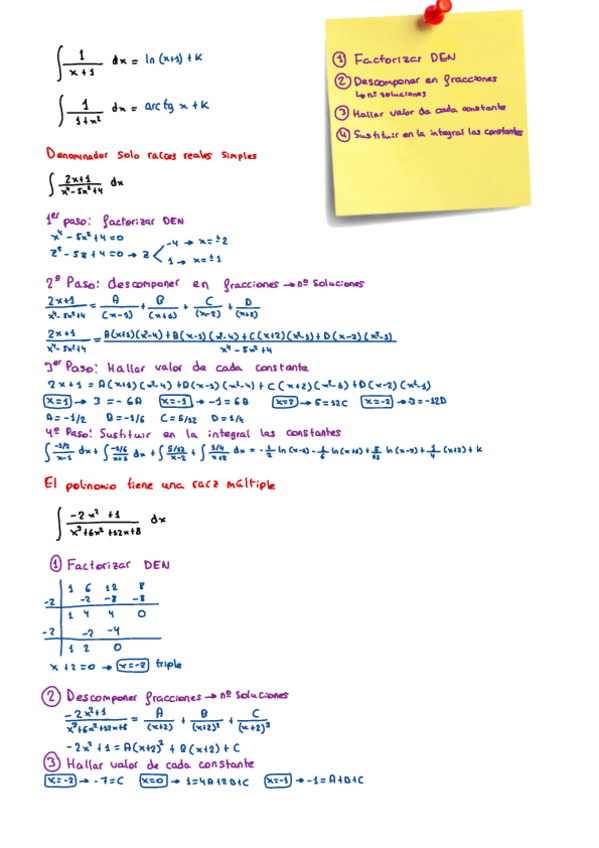 ∫ 1/(x+1) dx = ln (x+1) + K
∫ 1/(1+x²) dx = arctg x + K
① Factorizar DEN
② Descomponer en fracciones
↳ nº soluciones
③ Hallar valor de cada constante
④ Sustituir en la integral las constantes
Denominador solo raíces reales simples
∫ (2x+1)/(x⁴-5x²+4) dx
1er paso: factorizar DEN
x⁴ - 5x² + 4 = 0
z² - 5z + 4 = 0 → z < 4 → x = ±2
1 → x = ±1
2º Paso: descomponer en fracciones → nº soluciones
(2x+1)/(x⁴-5x²+4) = A/(x-1) + B/(x+1) + C/(x-2) + D/(x+2)
(2x+1)/(x⁴-5x²+4) = (A(x+1)(x²-4) + B(x-1)(x²-4) + C(x+2)(x²-1) + D(x-2)(x²-1))/(x⁴-5x²+4)
3er Paso: Hallar valor de cada constante
2x+1 = A(x+1)(x²-4) + B(x-1)(x²-4) + C(x+2)(x²-1) + D(x-2)(x²-1)
x=1 → 3 = -6A x=-1 → -1 = 6B x=2 → 5 = 12C x=-2 → -3 = -12D
A = -1/2 B = -1/6 C = 5/12 D = 1/4
4º Paso: Sustituir en la integral las constantes
∫ (-1/2)/(x-1) dx + ∫ (-1/6)/(x+1) dx + ∫ (5/12)/(x-2) + ∫ (1/4)/(x+2) dx = -1/2 ln (x-1) - 1/6 ln (x+1) + 5/12 ln (x-2) + 1/4 (x+2) + K
El polinomio tiene una raíz múltiple
∫ (-2x²+1)/(x³+6x²+12x+8) dx
① Factorizar DEN
1 6 12 8
-2 -2 -8 -8
1 4 4 0
-2 -2 -4
1 2 0
x+2=0 → x=-2 triple
② Descomponer fracciones → nº soluciones
(-2x²+1)/(x³+6x²+12x+8) = A/(x+2) + B/(x+2)² + C/(x+2)³
-2x²+1 = A(x+2)² + B(x+2) + C
③ Hallar valor de cada constante
x=-2 → -7=C x=0 → 1=4A+2B+C x=-1 → -1=A+B+C